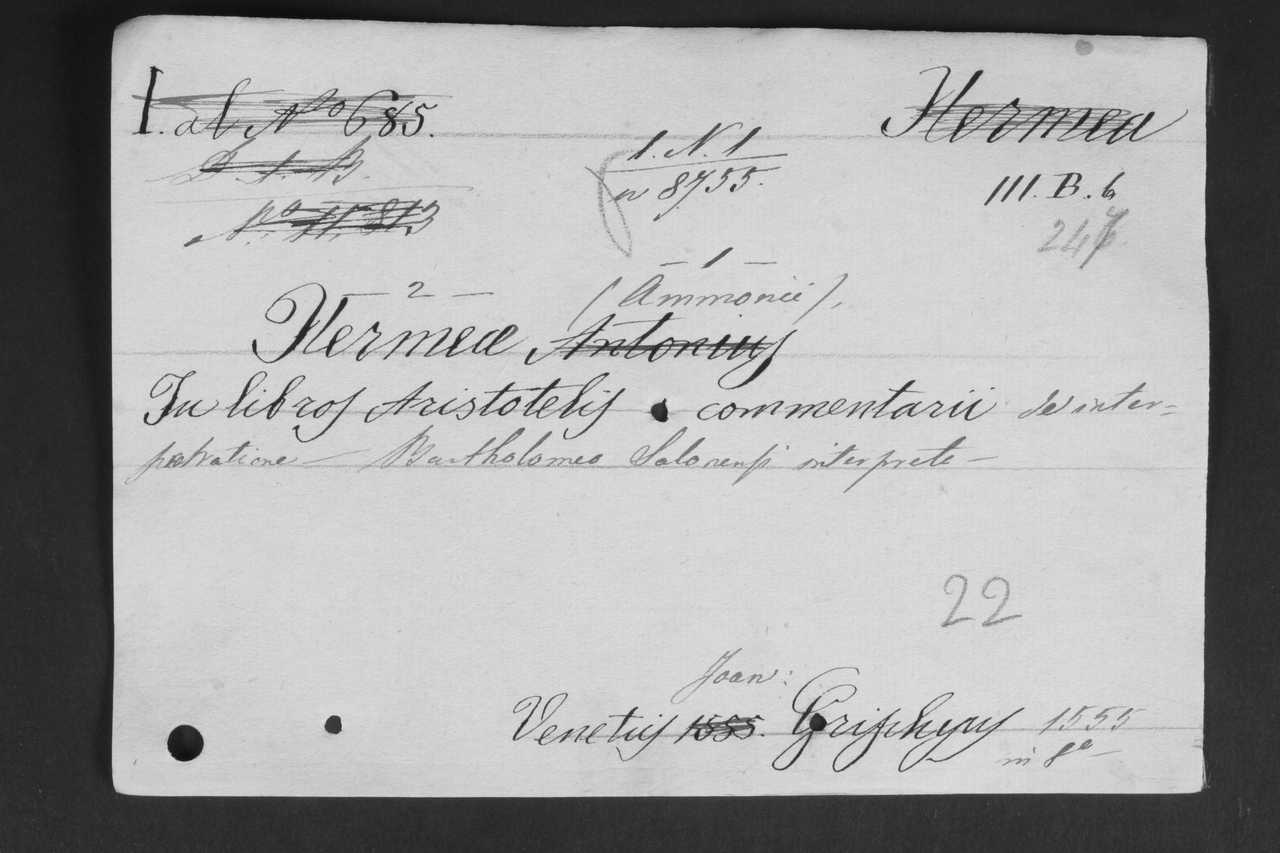 I. al No 685.
Hermea
I. A. B.
No 11,813
1. N. 1
n 8755.
III. B. 6
247
— 2 — — 1 —
(Ammonii),
Hermeæ Antonius
In libros Aristotelis commentarii de inter=
pretatione — Bartholomeo Salonensi interprete —
22
Joan:
Venetiis 1555. Griphyus 1555
in 8o